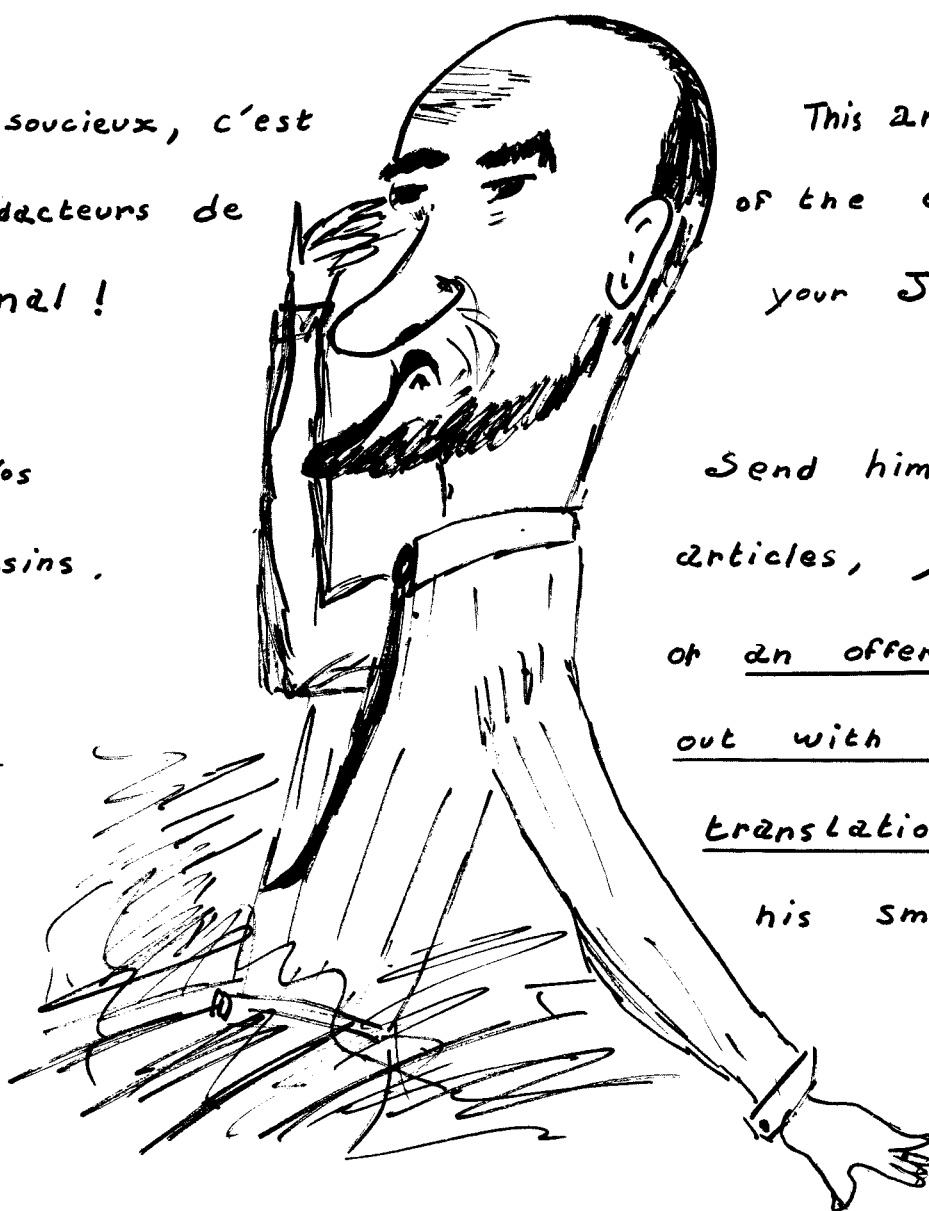 soucieux, c'est
dacteurs de
nal !
os
sins .
This an
of the e
your J
Send him
articles,
or an offer
out with
translatio
his sm